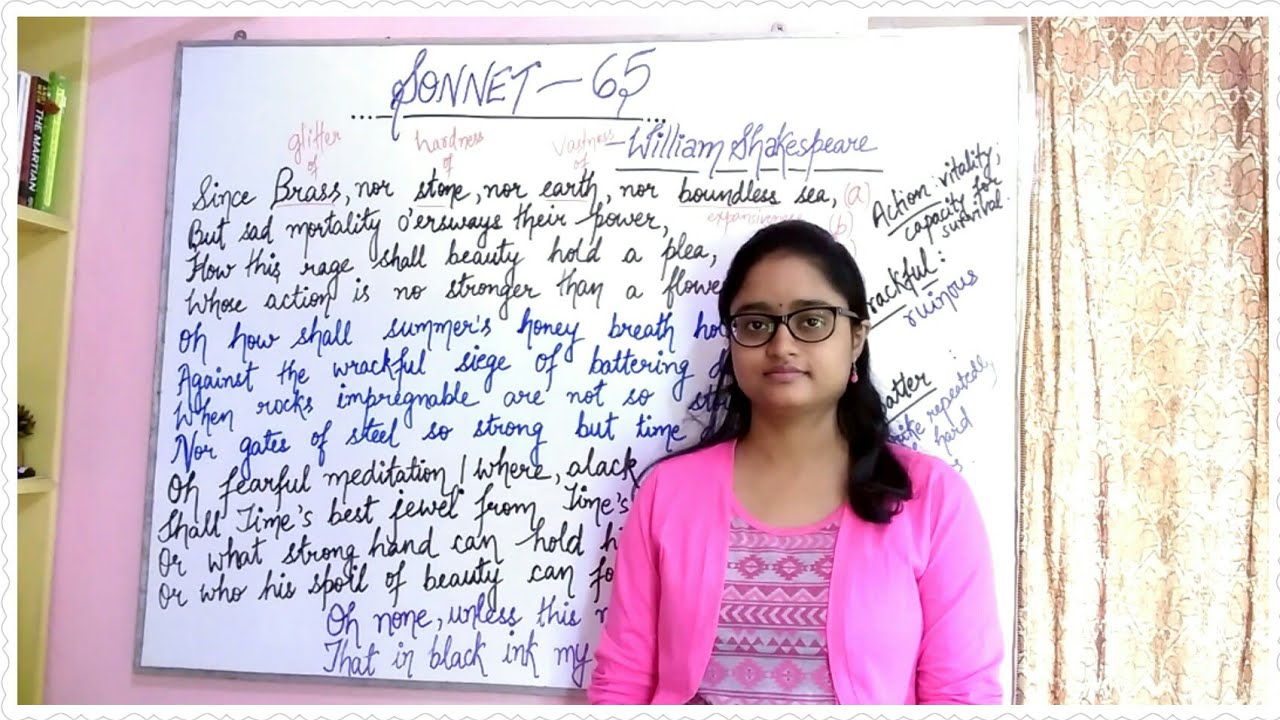 SONNET - 65
- William Shakespeare
glitter of
hardness of
vastness of
Since Brass, nor stone, nor earth, nor boundless sea, (a)
expansiveness
But sad mortality o'ersways their power, (b)
How this rage shall beauty hold a plea,
Whose action is no stronger than a flower
Oh how shall summer's honey breath
Against the wrackful siege of battering
When rocks impregnable are not so
Nor gates of steel so strong but time
Oh fearful meditation! where, alack
Shall Time's best jewel from Time's
Or what strong hand can hold
Or who his spoil of beauty can
Oh none, unless this
That in black ink my
Action: vitality;
capacity for
survival.
rackful:
ruinous
batter:
repeatedly
hard
THE MARTIAN